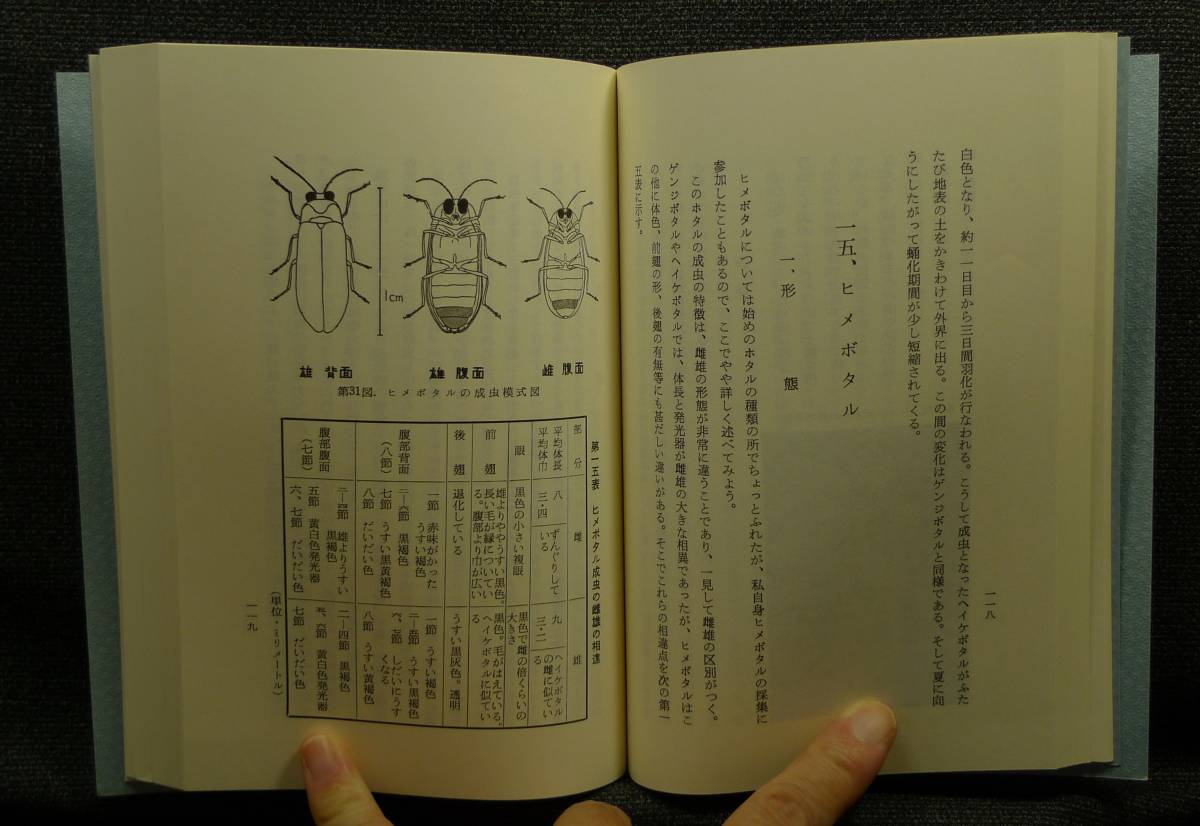 白色となり、約一一日目から三日間羽化が行なわれる。こうして成虫となったヘイケボタルがふた
たび地表の土をかきわけて外界に出る。この間の変化はゲンジボタルと同様である。そして夏に向
うにしたがって蛹化期間が少し短縮されてくる。
一五、ヒメボタル
一、形態
ヒメボタルについては始めのホタルの種類の所でちょっとふれたが、私自身ヒメボタルの採集に
参加したこともあるので、ここでやや詳しく述べてみよう。
このホタルの成虫の特徴は、雌雄の形態が非常に違うことであり、一見して雌雄の区別がつく。
ゲンジボタルやヘイケボタルでは、体長と発光器が雌雄の大きな相異であったが、ヒメボタルはこ
の他に体色、前翅の形、後翅の有無等にも甚だしい違いがある。そこでこれらの相違点を次の第一
五表に示す。
一一八
1cm
雄 背面
雄 腹面
雌 腹面
第31図、ヒメボタルの成虫模式図
第一五表 ヒメボタル成虫の雌雄の相違
部分
雌
雄
平均体長
平均体巾
八
三・四
ずんぐりして
いる
九
三・二
ヘイケボタル
の雌に似てい
る
眼
黒色の小さい複眼
黒色で雌の倍くらいの
大きさ
前翅
雄よりややうすい黒色。
長い毛が縁についてい
る。腹部より巾が広い
黒色。毛がはえている。
ヘイケボタルに似てい
る
後翅
退化している
うすい黒灰色。透明
腹部背面
(八節)
一節 赤味がかった
うすい褐色
二―六節 黒褐色
七節 うすい黒黄褐色
八節 だいだい色
一節 うすい褐色
二―五節 うすい黒褐色
六、七節 しだいにうす
くなる
八節 うすい黄褐色
腹部腹面
(七節)
二―四節 雄よりうすい
黒褐色
五節 黄白色発光器
六、七節 だいだい色
二―四節 黒褐色
五、六節 黄白色発光器
七節 だいだい色
(単位・ミリメートル)
一一九